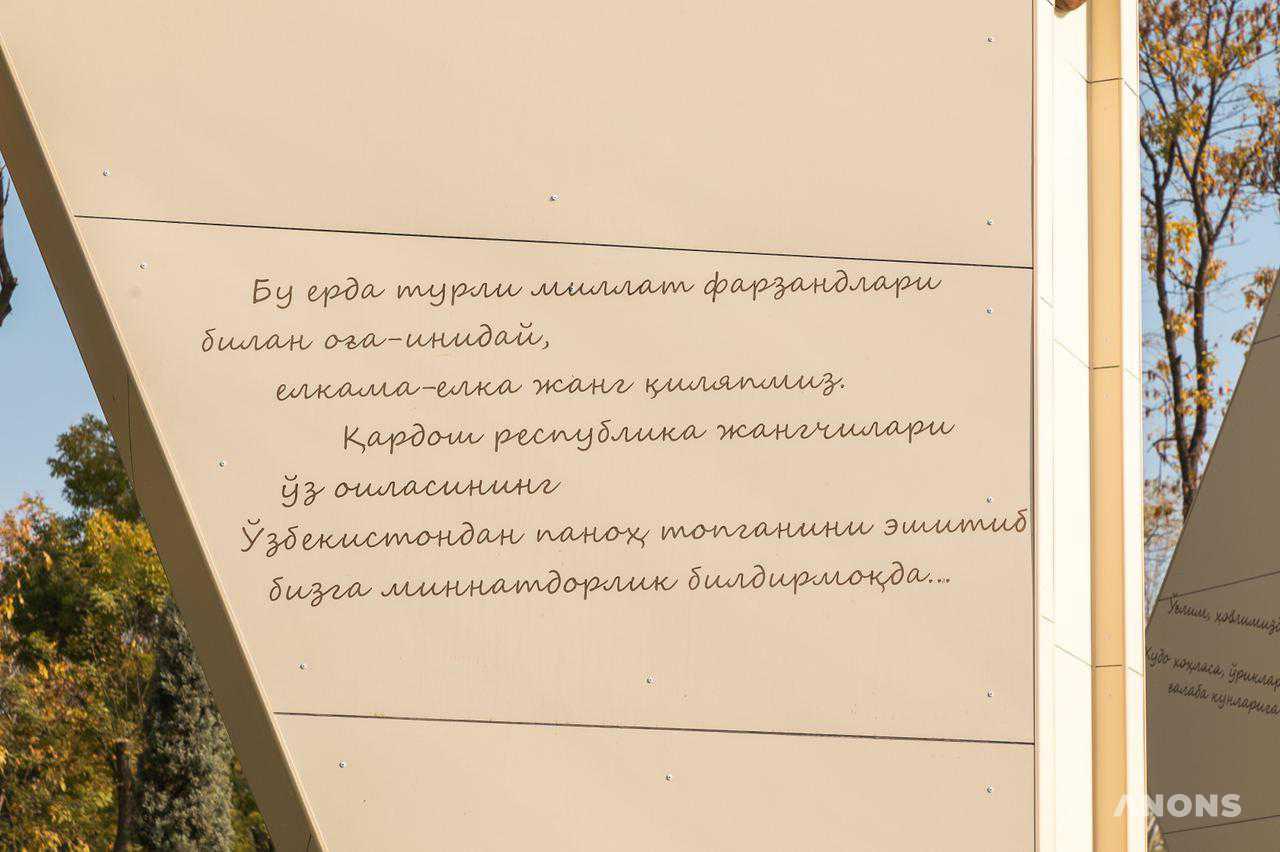 Бу ерда турли миллат фарзандлари
билан оға-инидай,
елкама-елка жанг қиляпмиз.
Қардош республика жангчилари
ўз оиласининг
Ўзбекистондан паноҳ топганини эшитиб
бизга миннатдорлик билдирмоқда...
Ўғлим, ҳовлимизд
Худо хоҳласа, ўринлар
ғалаба кунларига
ANONS